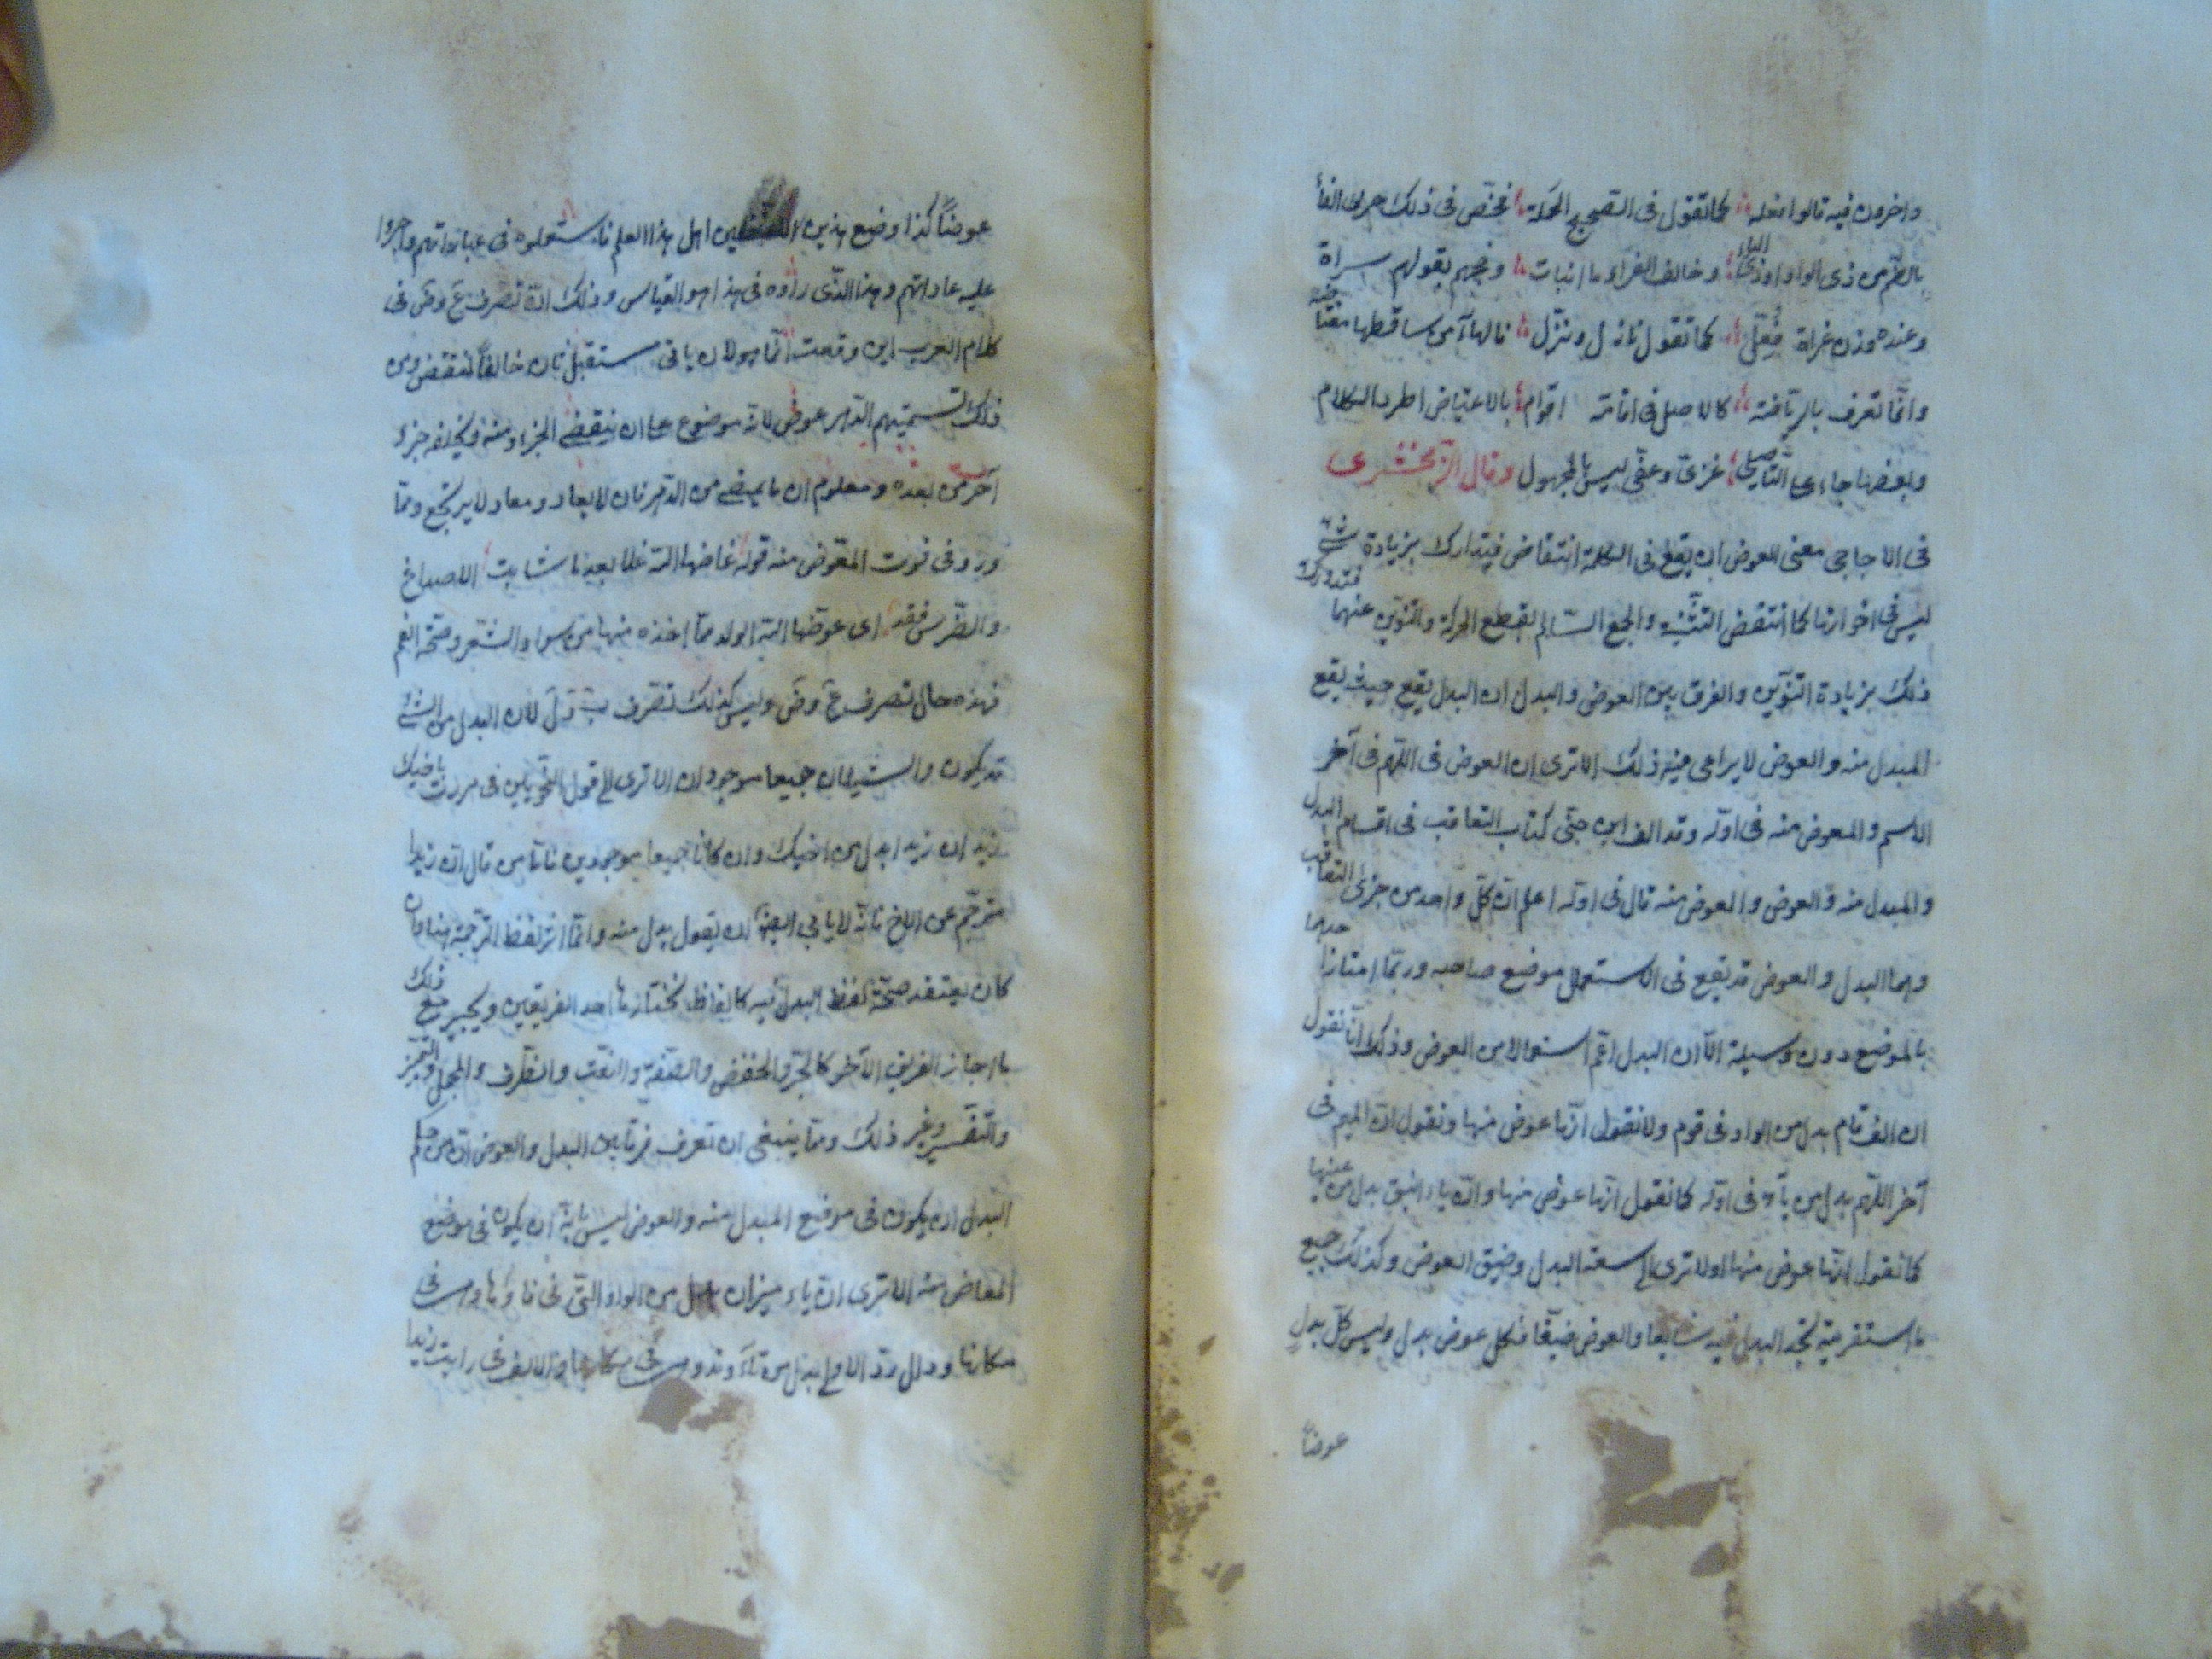 واخرون فيه قالوا فعله كما تقول في الصحيح الحملة فخص في ذلك حرف الفاء
بالضم من ذي الواو او ذي الياء وخالف الفراء ما انبات وحجهم بقولهم سراة
وعنده وزن غزاة فعّل كما تقول نازل ونزّل فالهاء من ساقطها معتاضه
وانما تعرف بالرياضة كالاصل في اقامة اقوام بالاعتياض اطرد الكلام
وبعضها جاء على التأصيل غزىّ وعفّى ليس بالمجهول وقال الزمخشري
في الاحاجي معنى العوض ان يقع في الكلمة انتقاض فيتدارك بزيادة شئ
ليس في اخواتها كما انتقض التثنية والجمع السالم بقطع الحركة والتنوين عنهما فتدورك
ذلك بزيادة التنوين والفرق بين العوض والبدل ان البدل يقع حيث يقع
المبدل منه والعوض لا يراعى فيه ذلك الا ترى ان العوض في اللهم في آخر
الاسم والمعوض منه في اوله وقد الف ابن جنى كتاب التعاقب في اقسام البدل
والمبدل منه والعوض والمعوض منه قال في اوله اعلم ان كل واحد من جزى التعاقب
وهما البدل والعوض قد يقع في الاستعمال موضع صاحبه وربما امتازا حدهما
بالموضع دون وسيلة الا ان البدل اعم استعمالا من العوض وذلك انا نقول
ان الف قام بدل من الواو في قوم ولا نقول انها عوض منها ونقول ان الميم في
آخر اللهم بدل من يا في اوله كما نقول انها عوض منها وان ياء اينق بدل من عينها
كما نقول انها عوض منها اولا ترى الى سعة البدل وضيق العوض وكذلك جميع
ما استقريته تجد البدل فيه شايعا والعوض ضيقا فكل عوض بدل وليس كل بدل
عوضاً
عوضاً كذا وضع هذين اللفظين اهل هذا العلم فاستعملوه في عباراتهم واجروا
عليه عاداتهم وهذا الذى رأوه في هذا هو القياس وذلك ان تصرف ع وض في
كلام العرب اين وقعت انما هو لان ياتي مستقبل ثان خالفاً لمنقض ومن
ذلك تسميتهم الدهر عوض لانه موضوع على ان ينقضى الجزء منه ويخلفه جزء
آخر من بعده ومعلوم ان ما يمضى من الدهر فان لا يعاد ومعاد لا يرتجع ومما
ورد في فوت المعوض منه قوله عاضها الله غلاما بعد ما شابت الاصداغ
والضرس نقد اى عوضها الله الولد مما اخذه منها من سواد الشعر وصحة الفم
فهذه حال تصرف ع وض وليس كذلك تصرف ب د ل لان البدل من الشئ
قد يكون والشيئان جميعا موجودان الا ترى الى قول النحويين في مررت باخيك
زيد ان زيدا بدل من اخيك وان كانا جميعا موجودين فاما من قال ان زيدا
مترجم عن الاخ فانه لا يابى ايضا ان يقول بدل منه وانما اثر لفظ الترجمة هنا وان
كان يعتقد صحة لفظ البدل فيه كالفاظ يختارها احد الفريقين ويجيز مع ذلك
ما اجاز الفريق الآخر كالجر والخفض والصفة والنعت والظرف والمحل والتمييز
والتفسير وغير ذلك ومما ينبغى ان تعرف فرقا بين البدل والعوض ان من حكم
البدل ان يكون في موضع المبدل منه والعوض ليس بابه ان يكون في موضع
المعاض منه الا ترى ان ياء ميزان بدل من الواو التى في فاؤها وهى في
مكانها ودال رد الاولى بدل من تاء وهى في مكانها والالف في رايت زيدا